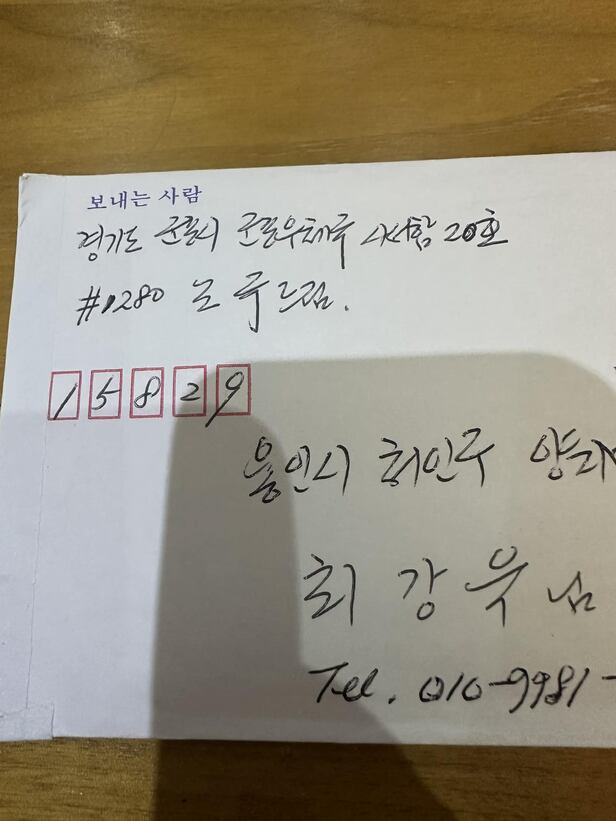 보내는 사람
경기도 군포시 군포우체국 사서함 20호
#1280 노 국 드림.
15829
용인시 처인구 양지
최 강 욱 님
Tel. 010-9981-